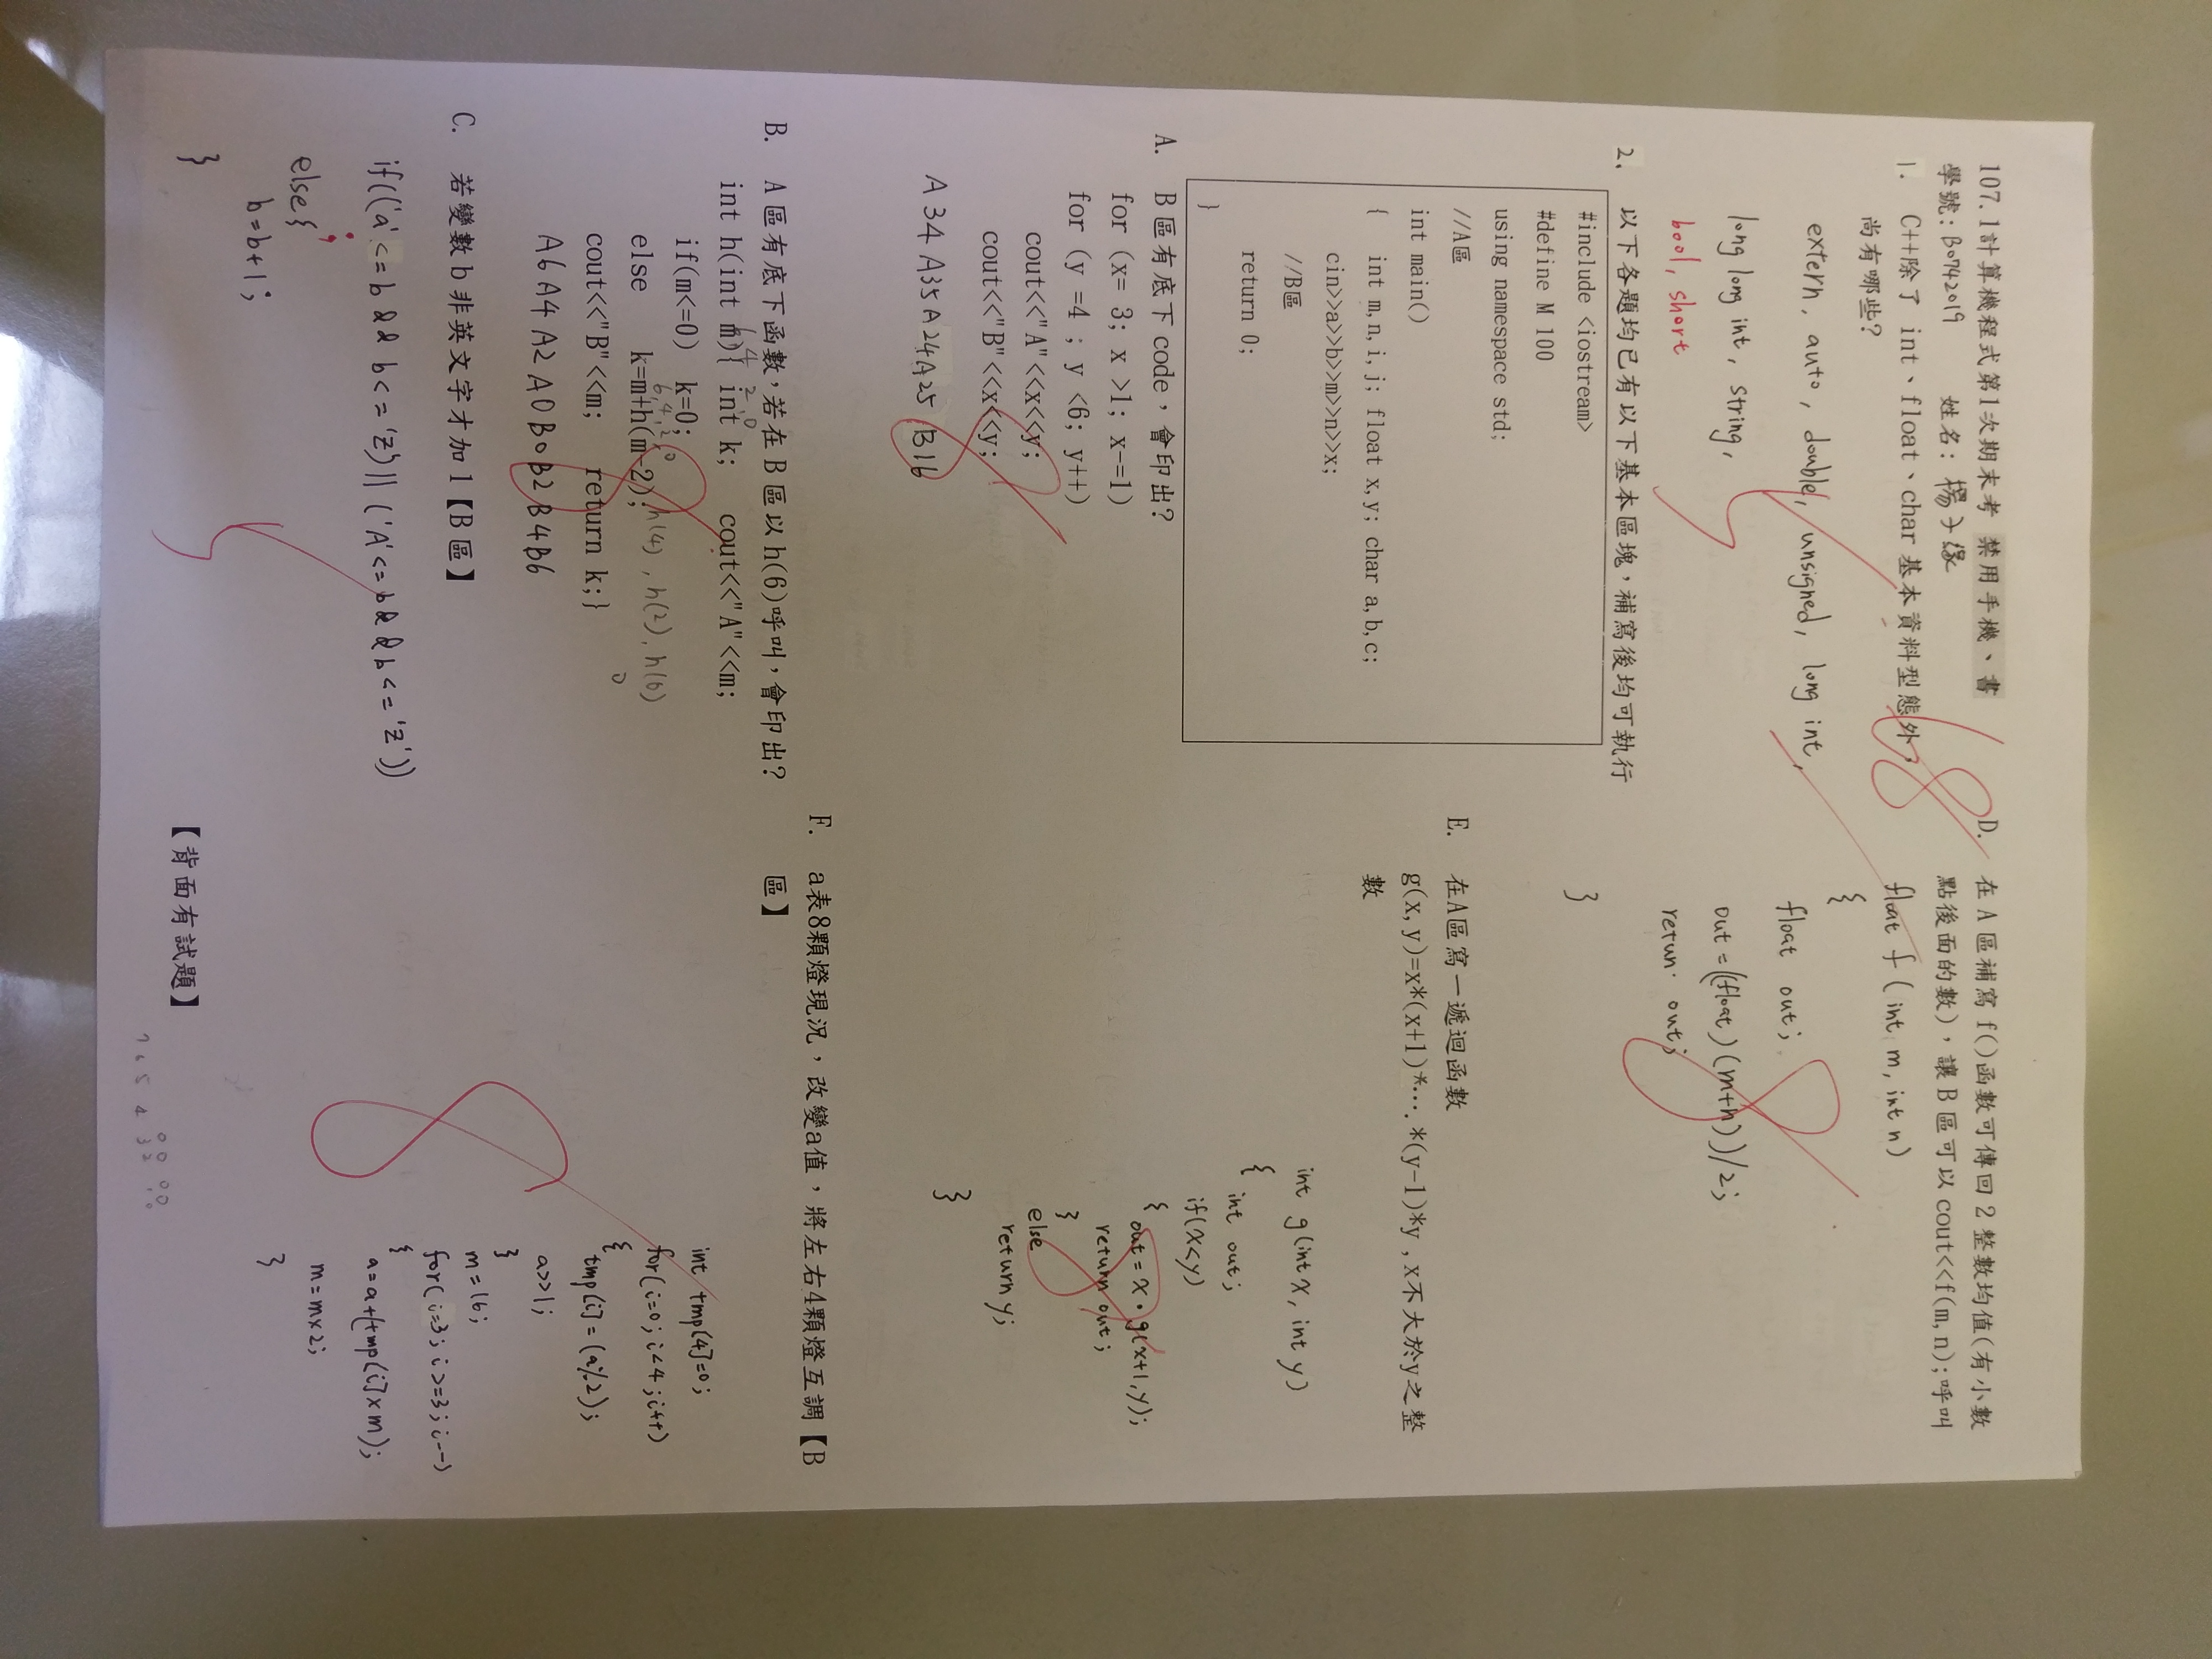 107.1計算機程式第1次期末考 禁用手機、書
學號: B0742019 姓名: 楊子緣
68
1. C++除了 int、float、char 基本資料型態外，
尚有哪些?
extern, auto, double, unsigned, long int,
long long int, string,
bool, short
5
2. 以下各題均已有以下基本區塊，補寫後均可執行
#include <iostream>
#define M 100
using namespace std;
//A區
int main()
{ int m,n,i,j; float x,y; char a,b,c;
cin>>a>>b>>m>>n>>x;
//B區
return 0;
}
A. B區有底下 code，會印出?
for (x= 3; x >1; x-=1)
for (y =4 ; y <6; y++)
cout<<"A"<<x<<y;
cout<<"B"<<x<<y;
8
A34 A35 A24 A25 B16
B. A區有底下函數，若在B區以h(6)呼叫，會印出?
6 4 2 0
int h(int m){ int k; cout<<"A"<<m;
if(m<=0) k=0;
6,4,2,0
else k=m+h(m-2); h(4), h(2), h(0)
0
cout<<"B"<<m; return k;}
8
A6 A4 A2 A0 B0 B2 B4 B6
C. 若變數b非英文字才加1【B區】
if(('a'<=b && b<='z')||('A'<=b&&b<='Z'))
;
else{
b=b+1;
}
5
D. 在A區補寫f()函數可傳回2整數均值(有小數
點後面的數)，讓B區可以cout<<f(m,n);呼叫
float f (int m, int n)
{
float out;
out=((float)(m+n))/2;
retun out;
}
8
E. 在A區寫一遞迴函數
g(x,y)=x*(x+1)*….*(y-1)*y ,x不大於y之整
數
int g(int x, int y)
{
int out;
if(x<y)
{ out= x · g(x+1,y);
return out;
}
else
return y;
}
8
F. a表8顆燈現況，改變a值，將左右4顆燈互調【B
區】
int tmp[4]=0;
for(i=0; i<4;i++)
{
tmp[i]=(a%2);
a>>1;
}
m=16;
for(i=3; i>=3; i--)
{
a=a+(tmp[i]×m);
m=m×2;
}
8
【背面有試題】
00 00
7 6 5 4 32 10